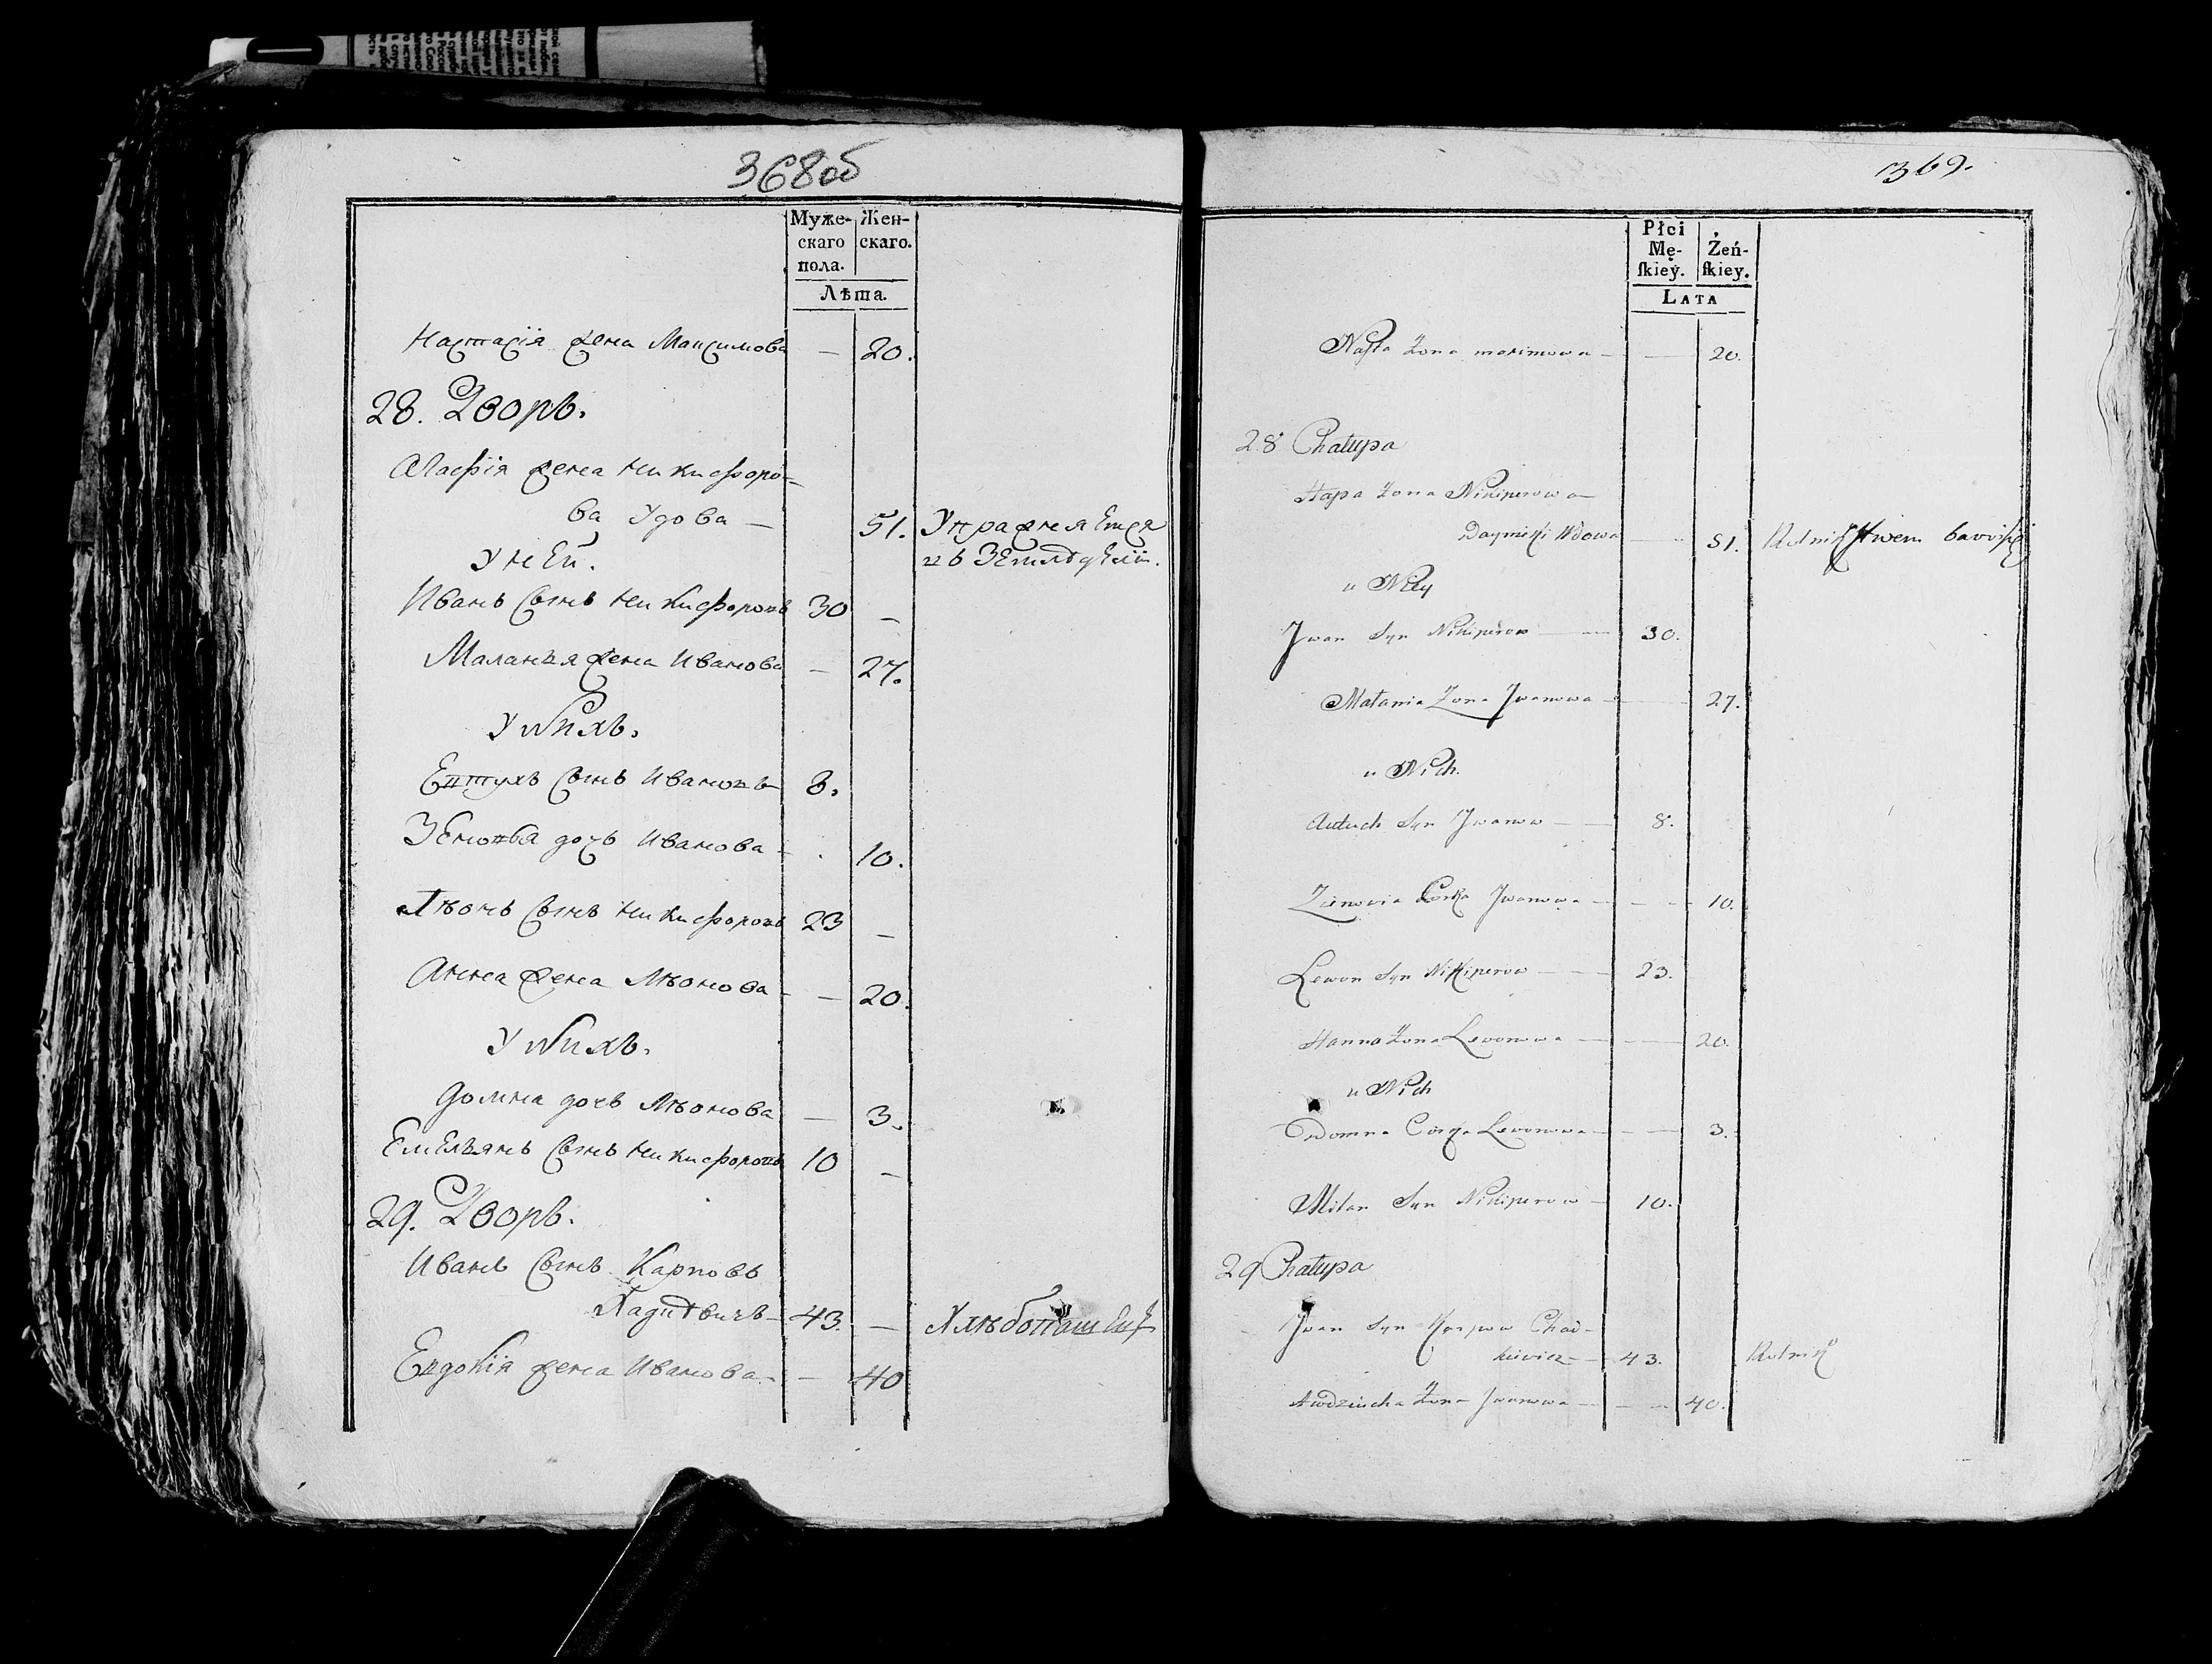 368об
Муже-
скаго
пола.
Жен-
скаго.
Лѣта.
Настасія жена Максимова — 20.
28. Дворъ.
Агафія жена Никифоро-
ва Удова — 51. Упражняется
въ Земледѣліи.
У ней.
Иванъ Сынъ Никифоровъ 30 —
Маланья жена Иванова — 27.
У Нихъ.
Евтухъ Сынъ Ивановъ 8.
Зеновья дочь Иванова — 10.
Лѣонъ Сынъ Никифоровъ 23 —
Анна жена Лѣонова — 20.
У Нихъ.
Домна дочь Лѣонова — 3.
Емельянъ Сынъ Никифоровъ 10 —
29. Дворъ.
Иванъ Сынъ Карповъ
43. — Хлѣбопашецъ
Евдокія жена Иванова — 40
369.
Płci
Mę-
ſkiey.
Żeń-
ſkiey.
LATA
Nasta Żona maximowa — 20.
28 Chałupa
Hapa Żona Nikiperowa
Wdowa — 51.
u Niey
Jwan Syn Nikiperow — 30.
Małania Żona Jwanowa — 27.
u Nich.
Autuch Syn Jwanow — 8.
Zienovia Corka Jwanowa — 10.
Lewon Syn Nikiperow — 23.
Hanna Żona Levonowa — 20.
u Nich
Dodomna Corka Levonowa — 3.
Milan Syn Nikiperow — 10.
29 Chałupa
Jwan Syn Karpow Chad-
kiewicz — 43. Rolnik
Awdziucha Żona Jwanowa — 40.